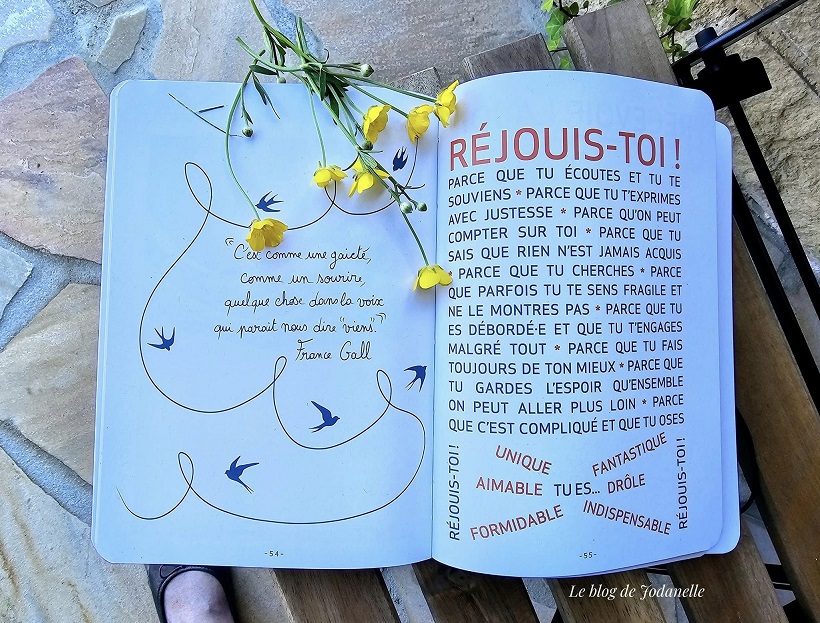 "C'est comme une gaieté,
comme un sourire,
quelque chose dans la voix
qui parait nous dire "viens"."
France Gall
- 54 -
RÉJOUIS-TOI !
PARCE QUE TU ÉCOUTES ET TU TE
SOUVIENS * PARCE QUE TU T'EXPRIMES
AVEC JUSTESSE * PARCE QU'ON PEUT
COMPTER SUR TOI * PARCE QUE TU
SAIS QUE RIEN N'EST JAMAIS ACQUIS
* PARCE QUE TU CHERCHES * PARCE
QUE PARFOIS TU TE SENS FRAGILE ET
NE LE MONTRES PAS * PARCE QUE TU
ES DÉBORDÉ·E ET QUE TU T'ENGAGES
MALGRÉ TOUT * PARCE QUE TU FAIS
TOUJOURS DE TON MIEUX * PARCE QUE
TU GARDES L'ESPOIR QU'ENSEMBLE
ON PEUT ALLER PLUS LOIN * PARCE
QUE C'EST COMPLIQUÉ ET QUE TU OSES
RÉJOUIS-TOI !
UNIQUE FANTASTIQUE
AIMABLE TU ES... DRÔLE
FORMIDABLE INDISPENSABLE
RÉJOUIS-TOI !
- 55 -
Le blog de Jodanelle